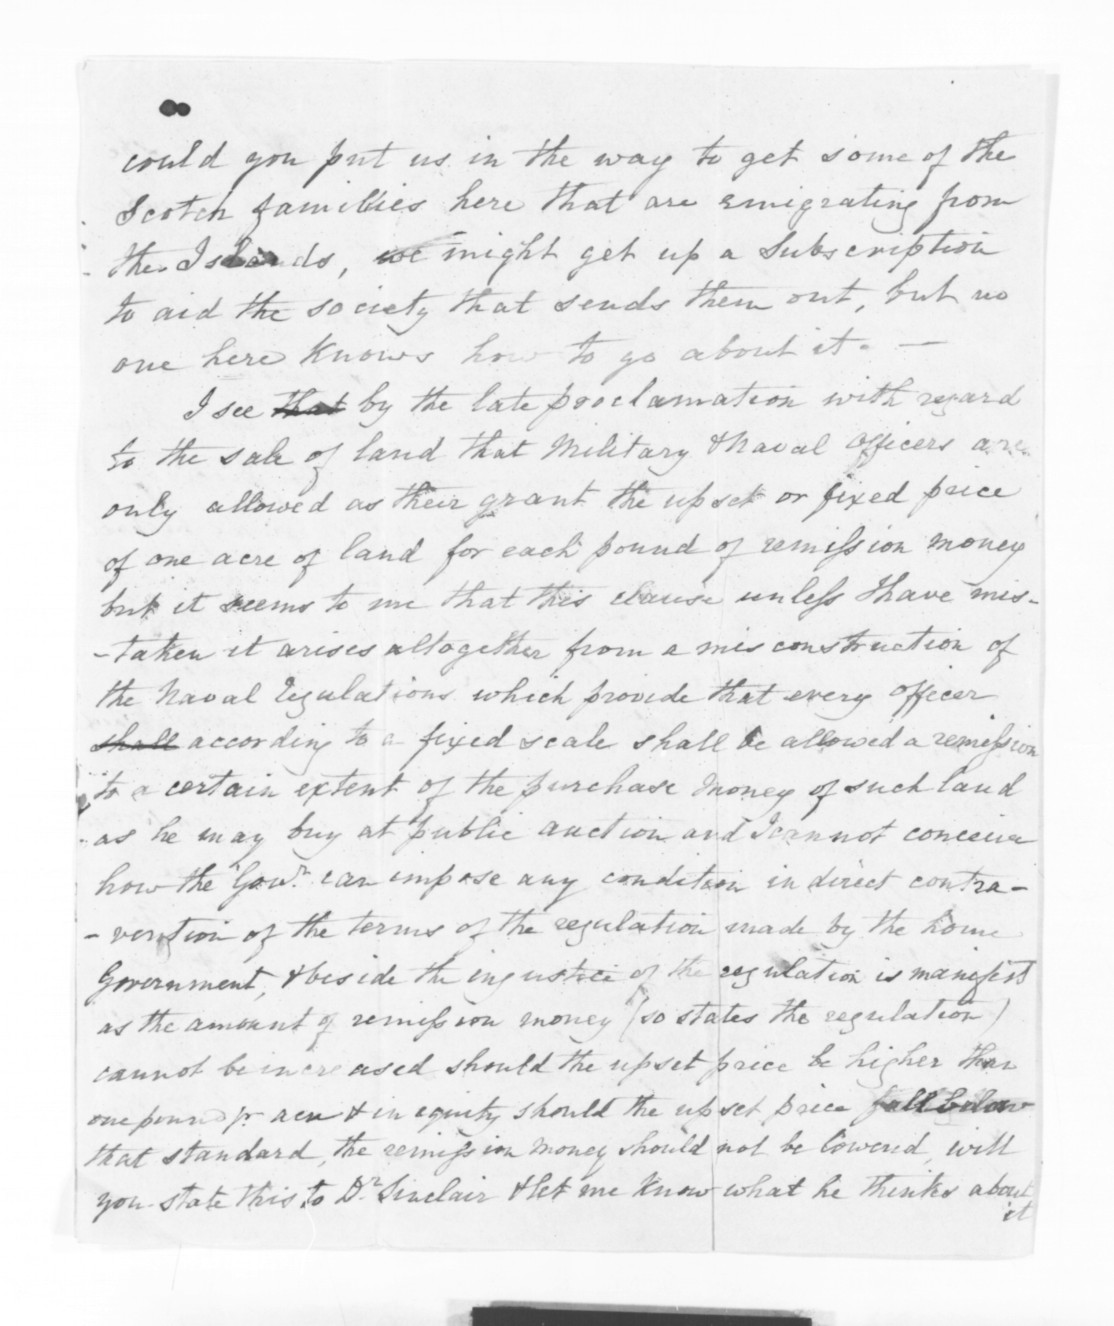 could you put us in the way to get some of the
Scotch families here that are emigrating from
the Islands, we might get up a Subscription
to aid the society that sends them out, but no
one here knows how to go about it. —
I see that by the late proclamation with regard
to the sale of land that Military & Naval Officers are
only allowed as their grant the upset or fixed price
of one acre of land for each pound of remission money
but it seems to me that this clause unless I have mis-
-taken it arises altogether from a misconstruction of
the Naval regulations which provide that every officer
shall according to a fixed scale shall be allowed a remission
to a certain extent of the purchase money of such land
as he may buy at public auction and I cannot conceive
how the Govr. can impose any condition in direct contra-
-vention of the terms of the regulation made by the home
Government, & beside the injustice of the regulation is manifest
as the amount of remission money (so states the regulation)
cannot be increased should the upset price be higher than
one pound pr acre & in equity should the upset price fall below
that standard, the remission money should not be lowered, will
you state this to Dr. Sinclair & let me know what he thinks about
it